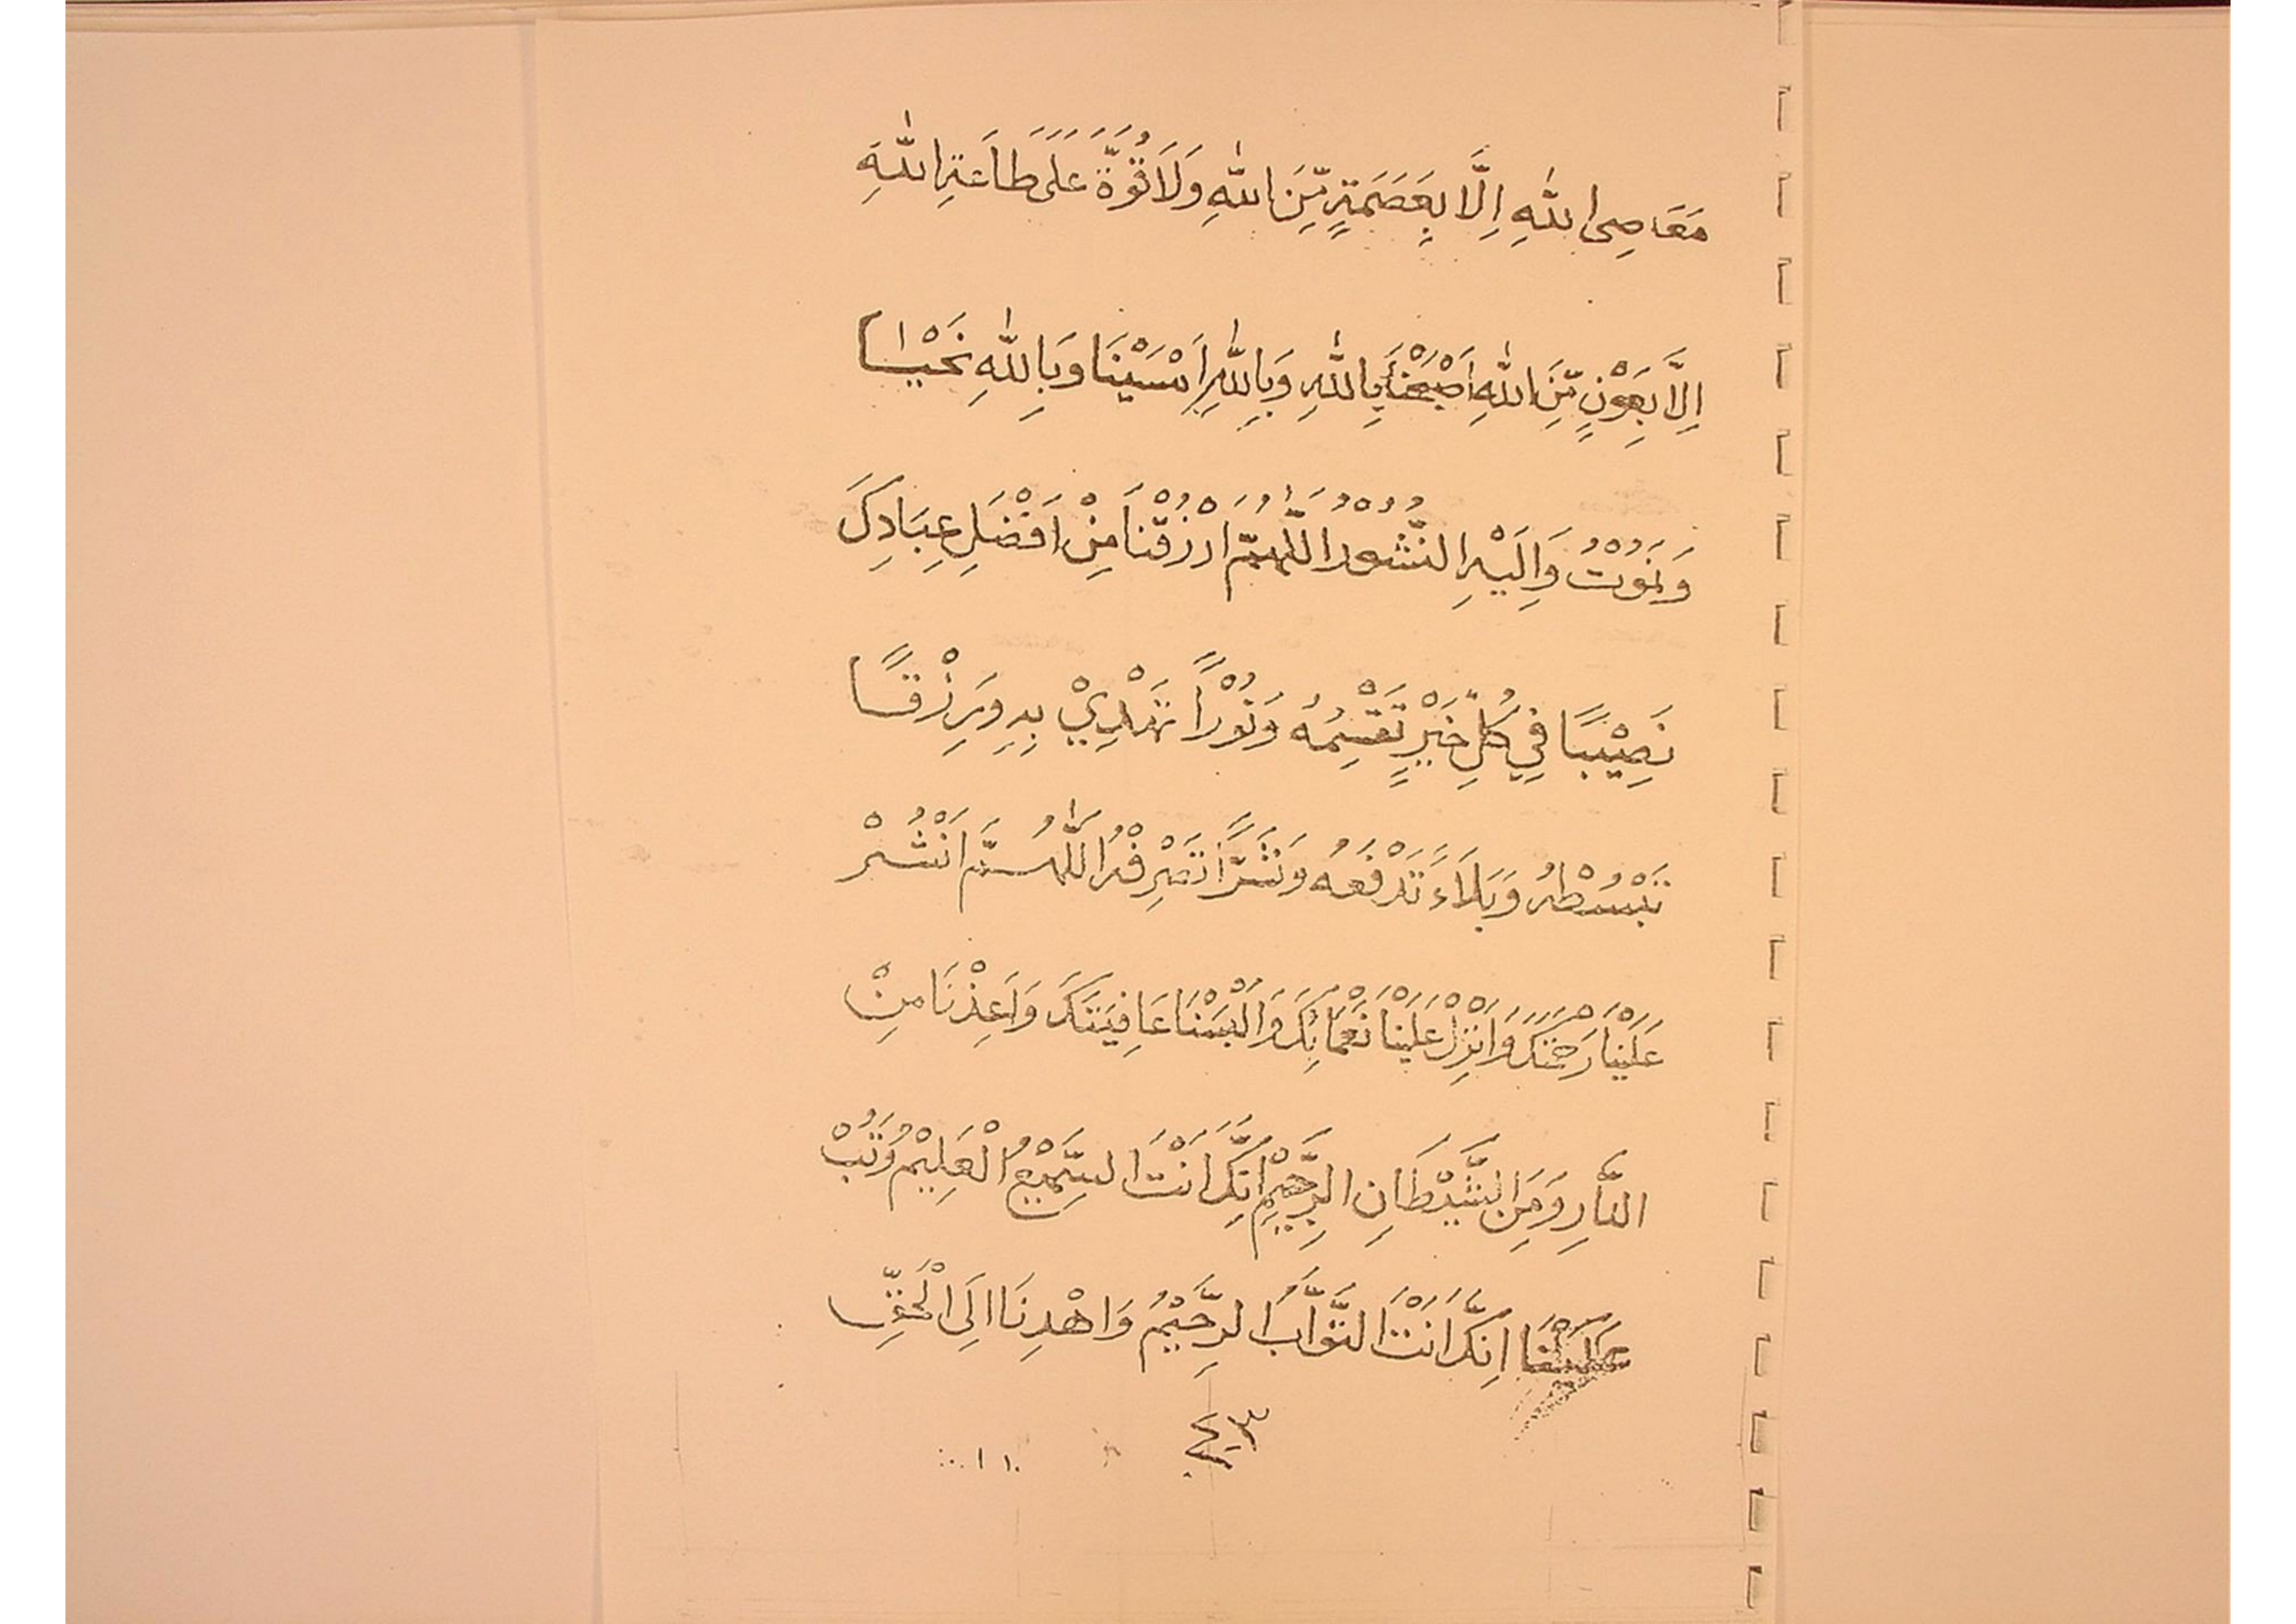 مَعَاصِى اللّٰهِ اِلَّا بِعَصَمَةٍ مِّنَ اللّٰهِ وَلَا قُوَّةَ عَلَى طَاعَةِ اللّٰهِ
اِلَّا بِعَوْنٍ مِّنَ اللّٰهِ اَصْبَحْنَا بِاللّٰهِ وَبِاللّٰهِ اَمْسَيْنَا وَبِاللّٰهِ نَحْيٰا
وَنَمُوْتُ وَاِلَيْهِ النُّشُوْرُ اللّٰهُمَّ ارْزُقْنَا مِنْ اَفْضَلِ عِبَادِكَ
نَصِيْبًا فِيْ كُلِّ خَيْرٍ تَقْسِمُهُ وَنُوْرًا تَهْدِيْ بِهِ وَرِزْقًا
تَبْسُطْهُ وَبَلَاءً تَدْفَعُهُ وَشَرًّا تَصْرِفْهُ اللّٰهُمَّ انْشُرْ
عَلَيْنَا رَحْمَتَكَ وَاَنْزِلْ عَلَيْنَا نَعْمَائِكَ وَاَلْبِسْنَا عَافِيَتَكَ وَاَعِذْنَا مِنْ
النَّارِ وَمِنَ الشَّيْطَانِ الرَّجِيْمِ اِنَّكَ اَنْتَ السَّمِيْعُ الْعَلِيْمُ وَتُبْ
عَلَيْنَا اِنَّكَ اَنْتَ التَّوَّابُ الرَّحِيْمُ وَاهْدِنَا اِلَى الْحَقِّ